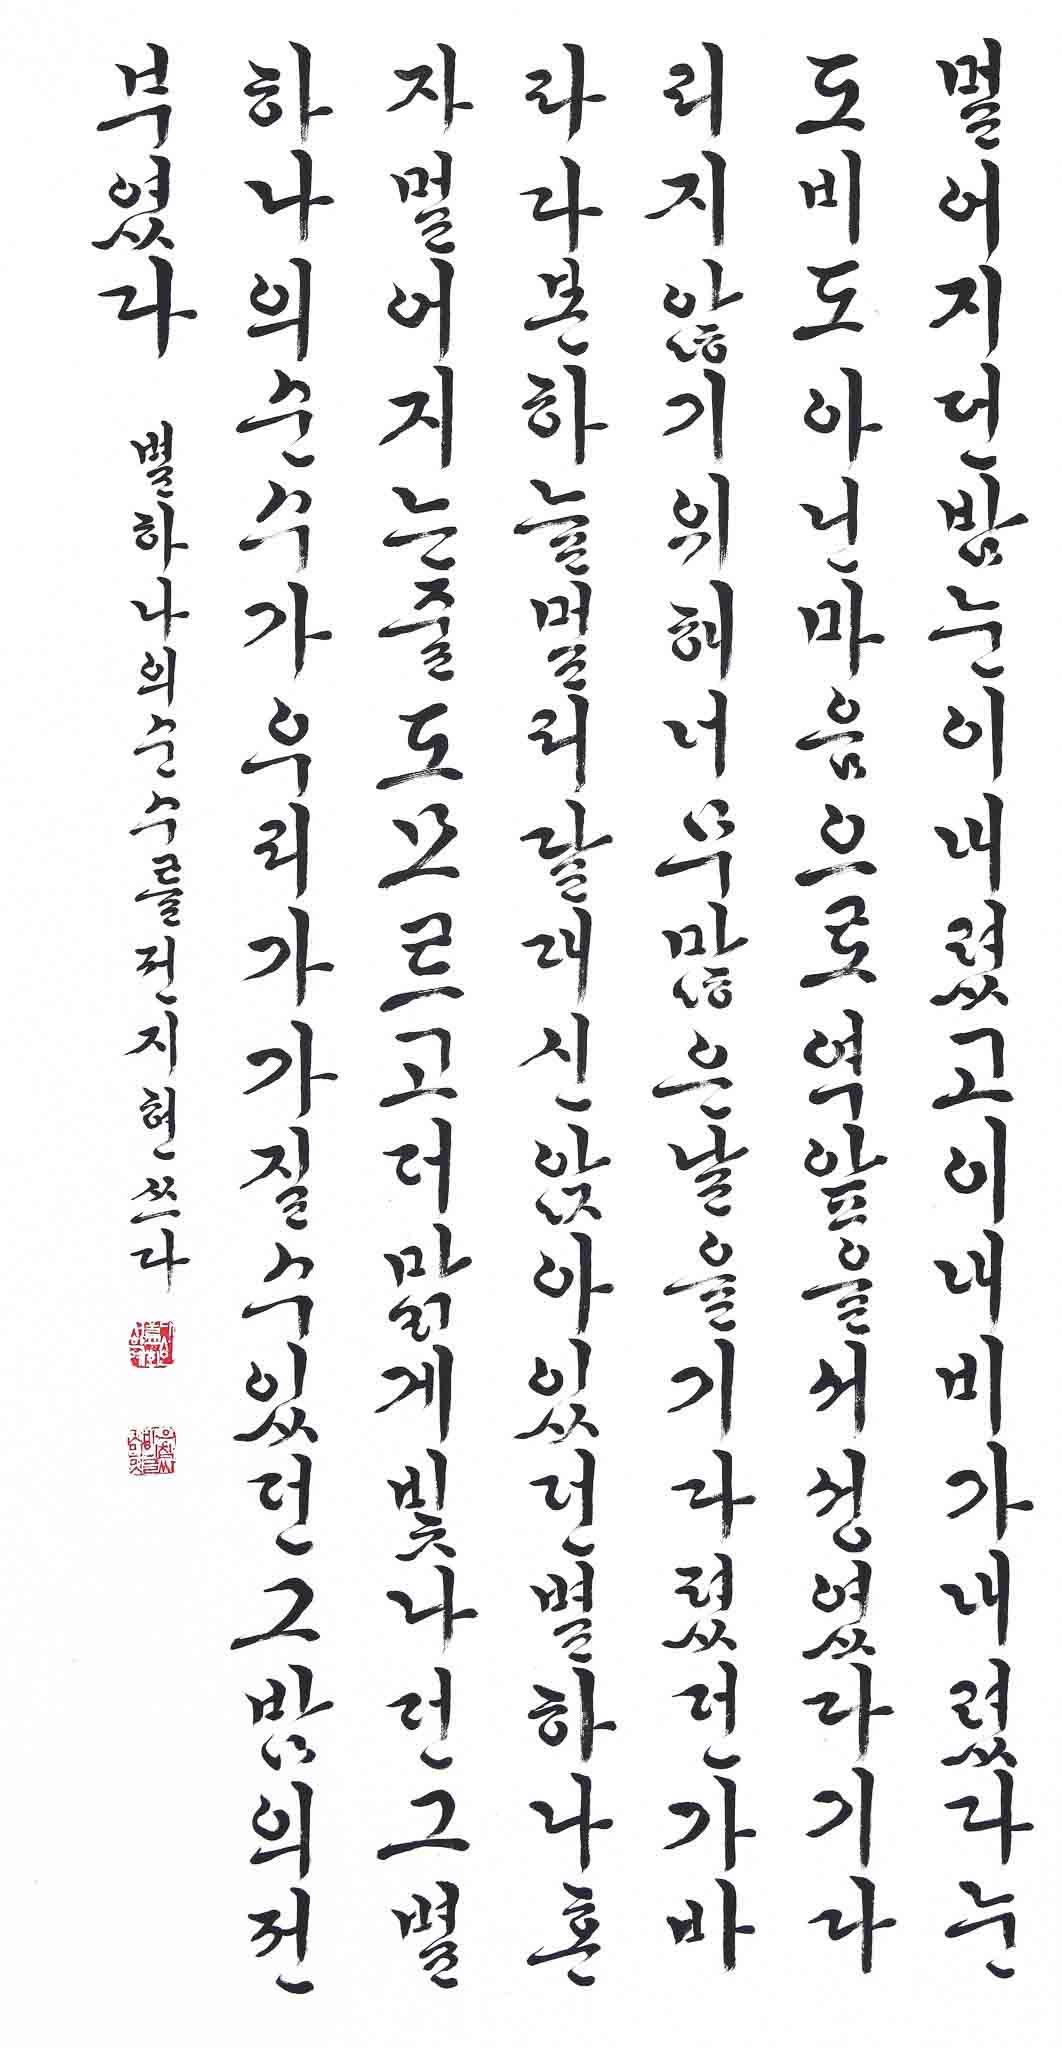 멀어지던밤눈이내렸고이내비가내렸다눈
도비도아닌마음으로역앞을서성였다기다
리지않기위해너무많은날을기다렸던가바
라다본하늘멀리달대신앉아있던별하나혼
자멀어지는줄도모르고더맑게빛나던그별
하나의순수가우리가가질수있던그밤의전
부였다 별하나의순수를전지현쓰다